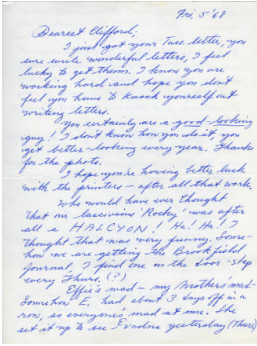 Fri. 5 '68
Dearest Clifford;
I just got your Tues letter, you
sure write wonderful letters, I feel
lucky to get them. I know you are
working hard and hope you don't
feel you have to knock yourself out
writing letters.
You certainly are a good-looking
guy! I don't know how you do it, you
get better-looking every year. Thanks
for the photo.
I hope you're having better luck
with the printers - after all that work.
Who would have ever thought
that our lascivious "Rocky" was after
all a HALCYON! Ha! Ha! I
thought that was very funny. Some-
how we are getting the Brookfield
Journal, I find one on the door-step
every Thurs. (?)
Effie's mad - my brother's mad -
Somehow E. had about 3 days off in a
row, so everyone's mad at me. She
set it up to see Evadne yesterday (Thurs)